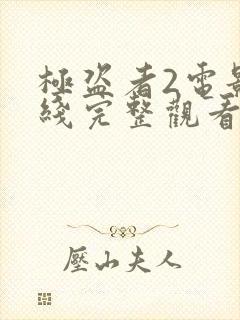 極盜者2電影
綫完整觀看
壓山夫人